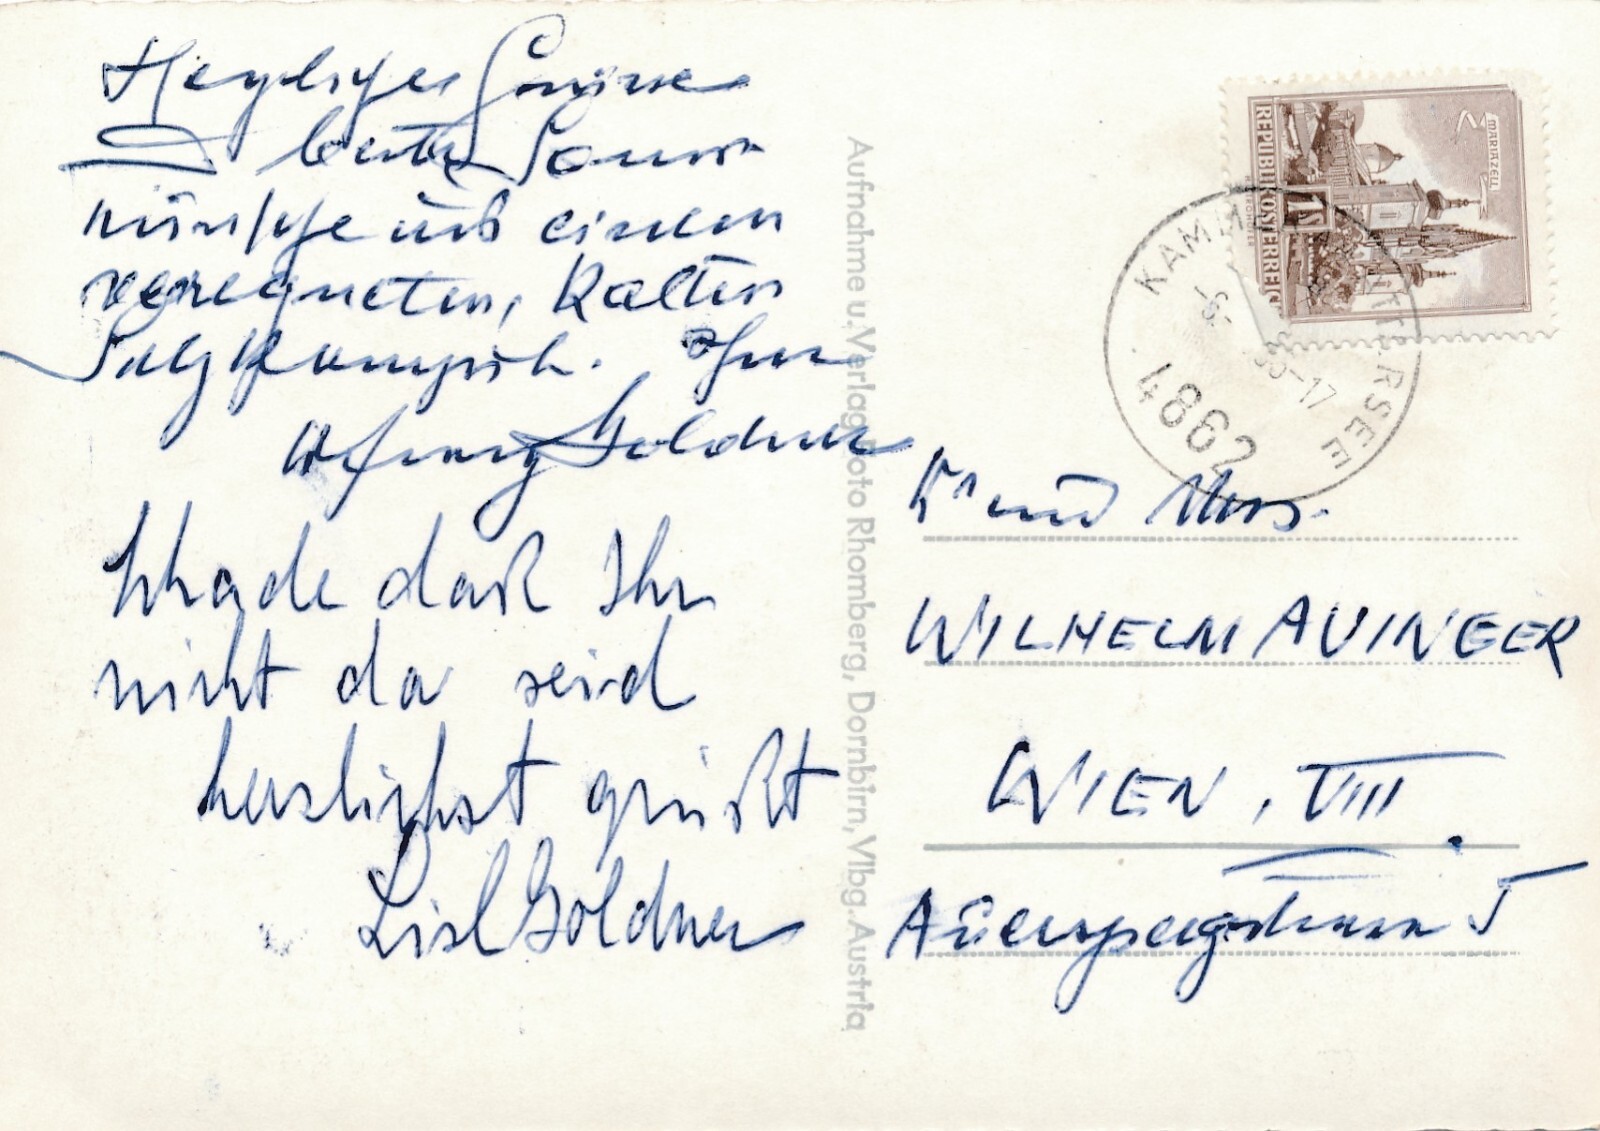 Herzliche Grüsse
u beste Sommer
wünsche aus einem
verregneten, kalten
Salzkammergut. Ihr
Goldner
Schade daß Ihr
nicht da seid
herzlichst grüßt
Lisl Goldner
Aufnahme u. Verlag Foto Rhomberg, Dornbirn, Vlbg. Austria
REPUBLIK ÖSTERREICH
MARIAZELL
KAMMER ATTERSEE
4862
-17
und Mrs.
WILHELM AUINGER
WIEN, VIII.
Auerspergstrasse 5